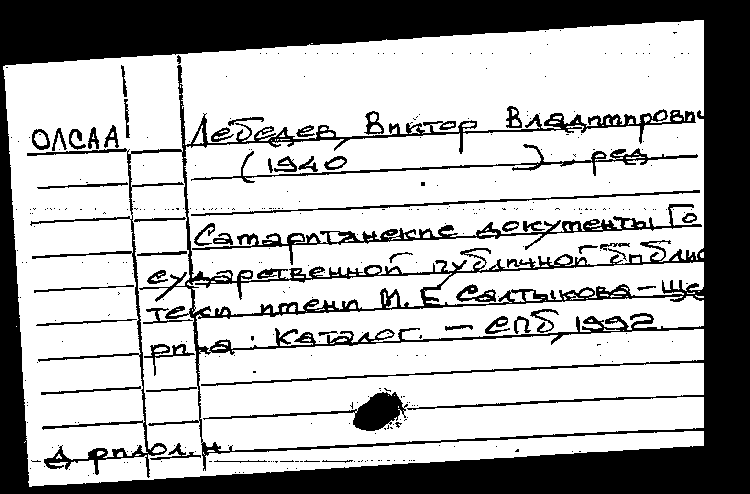 ОЛСАА Лебедев, Виктор Владимирович
(1940 ) - ред.
Самаритянские документы Го
сударственной публичной библио
теки имени М. Е. Салтыкова-Щед
рина : Каталог. - СПб, 1992.
д. филол. н.